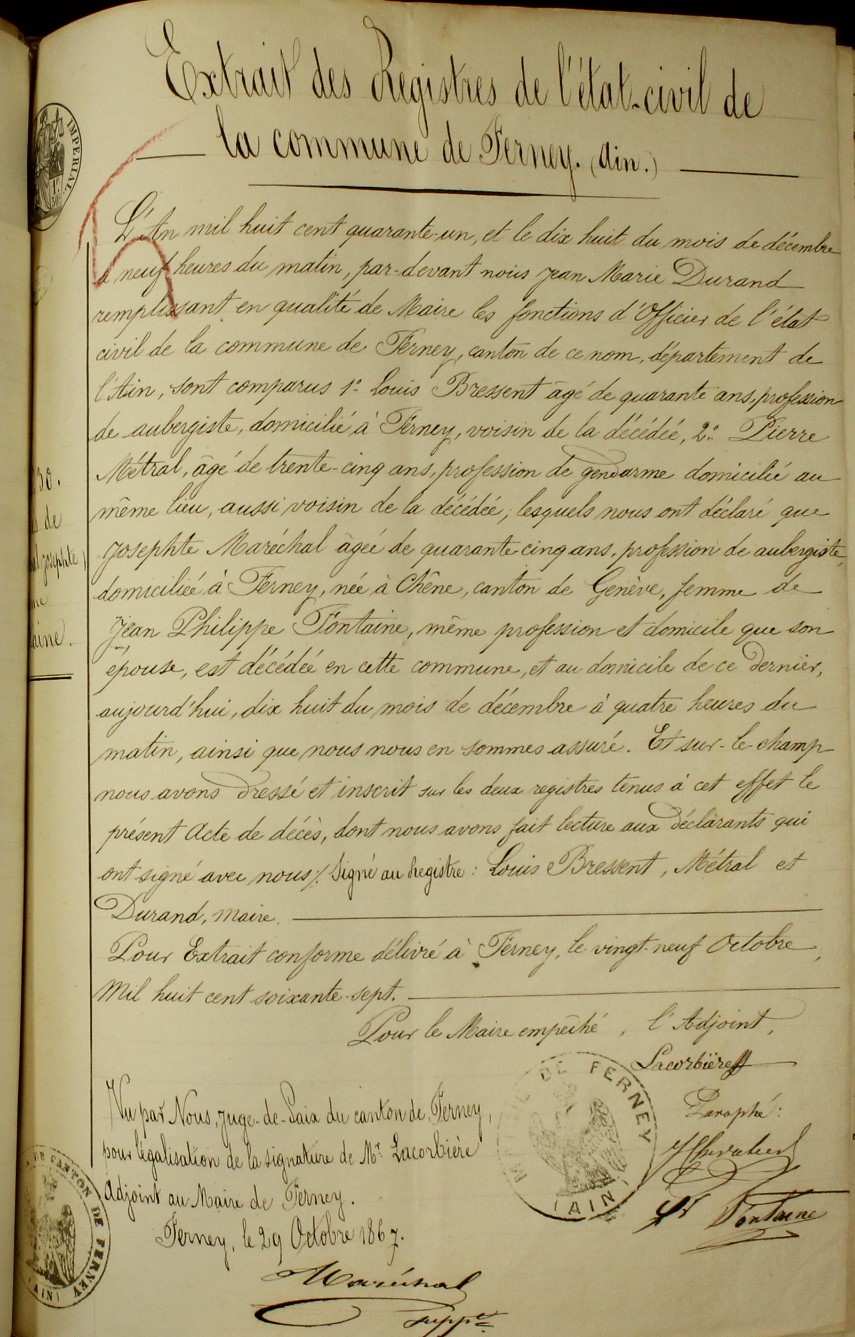 Extrait des Registres de l'état-civil de
la commune de Ferney. (Ain.)
IMPERIAL
L'An mil huit cent quarante-un, et le dix huit du mois de décembre
à neuf heures du matin, par-devant nous Jean Marie Durand
remplissant en qualité de Maire les fonctions d'Officier de l'état
civil de la commune de Ferney, canton de ce nom, département de
l'Ain, sont comparus 1º Louis Bressent âgé de quarante ans, profession
de aubergiste, domicilié à Ferney, voisin de la décédée, 2º Pierre
Métral, âgé de trente-cinq ans, profession de gendarme domicilié au
même lieu, aussi voisin de la décédée, lesquels nous ont déclaré que
Josephte Maréchal âgée de quarante cinq ans, profession de aubergiste,
domiciliée à Ferney, née à Chêne, canton de Genève, femme de
Jean Philippe Fontaine, même profession et domicile que son
épouse, est décédée en cette commune, et au domicile de ce dernier,
aujourd'hui, dix huit du mois de décembre à quatre heures du
matin, ainsi que nous nous en sommes assuré. Et sur-le-champ
nous avons dressé et inscrit sur les deux registres tenus à cet effet le
présent Acte de décès, dont nous avons fait lecture aux déclarants qui
ont signé avec nous. Signé au Registre : Louis Bressent, Métral et
Durand, maire.
Pour Extrait conforme délivré à Ferney, le vingt-neuf Octobre,
Mil huit cent soixante-sept.
Pour le Maire empêché, l'Adjoint,
Lacorbière
Paraphé :
Fontaine
MAIRIE DE FERNEY
(AIN)
Vu par Nous, Juge-de-Paix du canton de Ferney,
pour légalisation de la signature de Mr Lacorbière
Adjoint au Maire de Ferney.
Ferney, le 29 Octobre 1867.
Maréchal
suppt
CANTON DE FERNEY
(AIN)
30.
de
Josephte
aine.